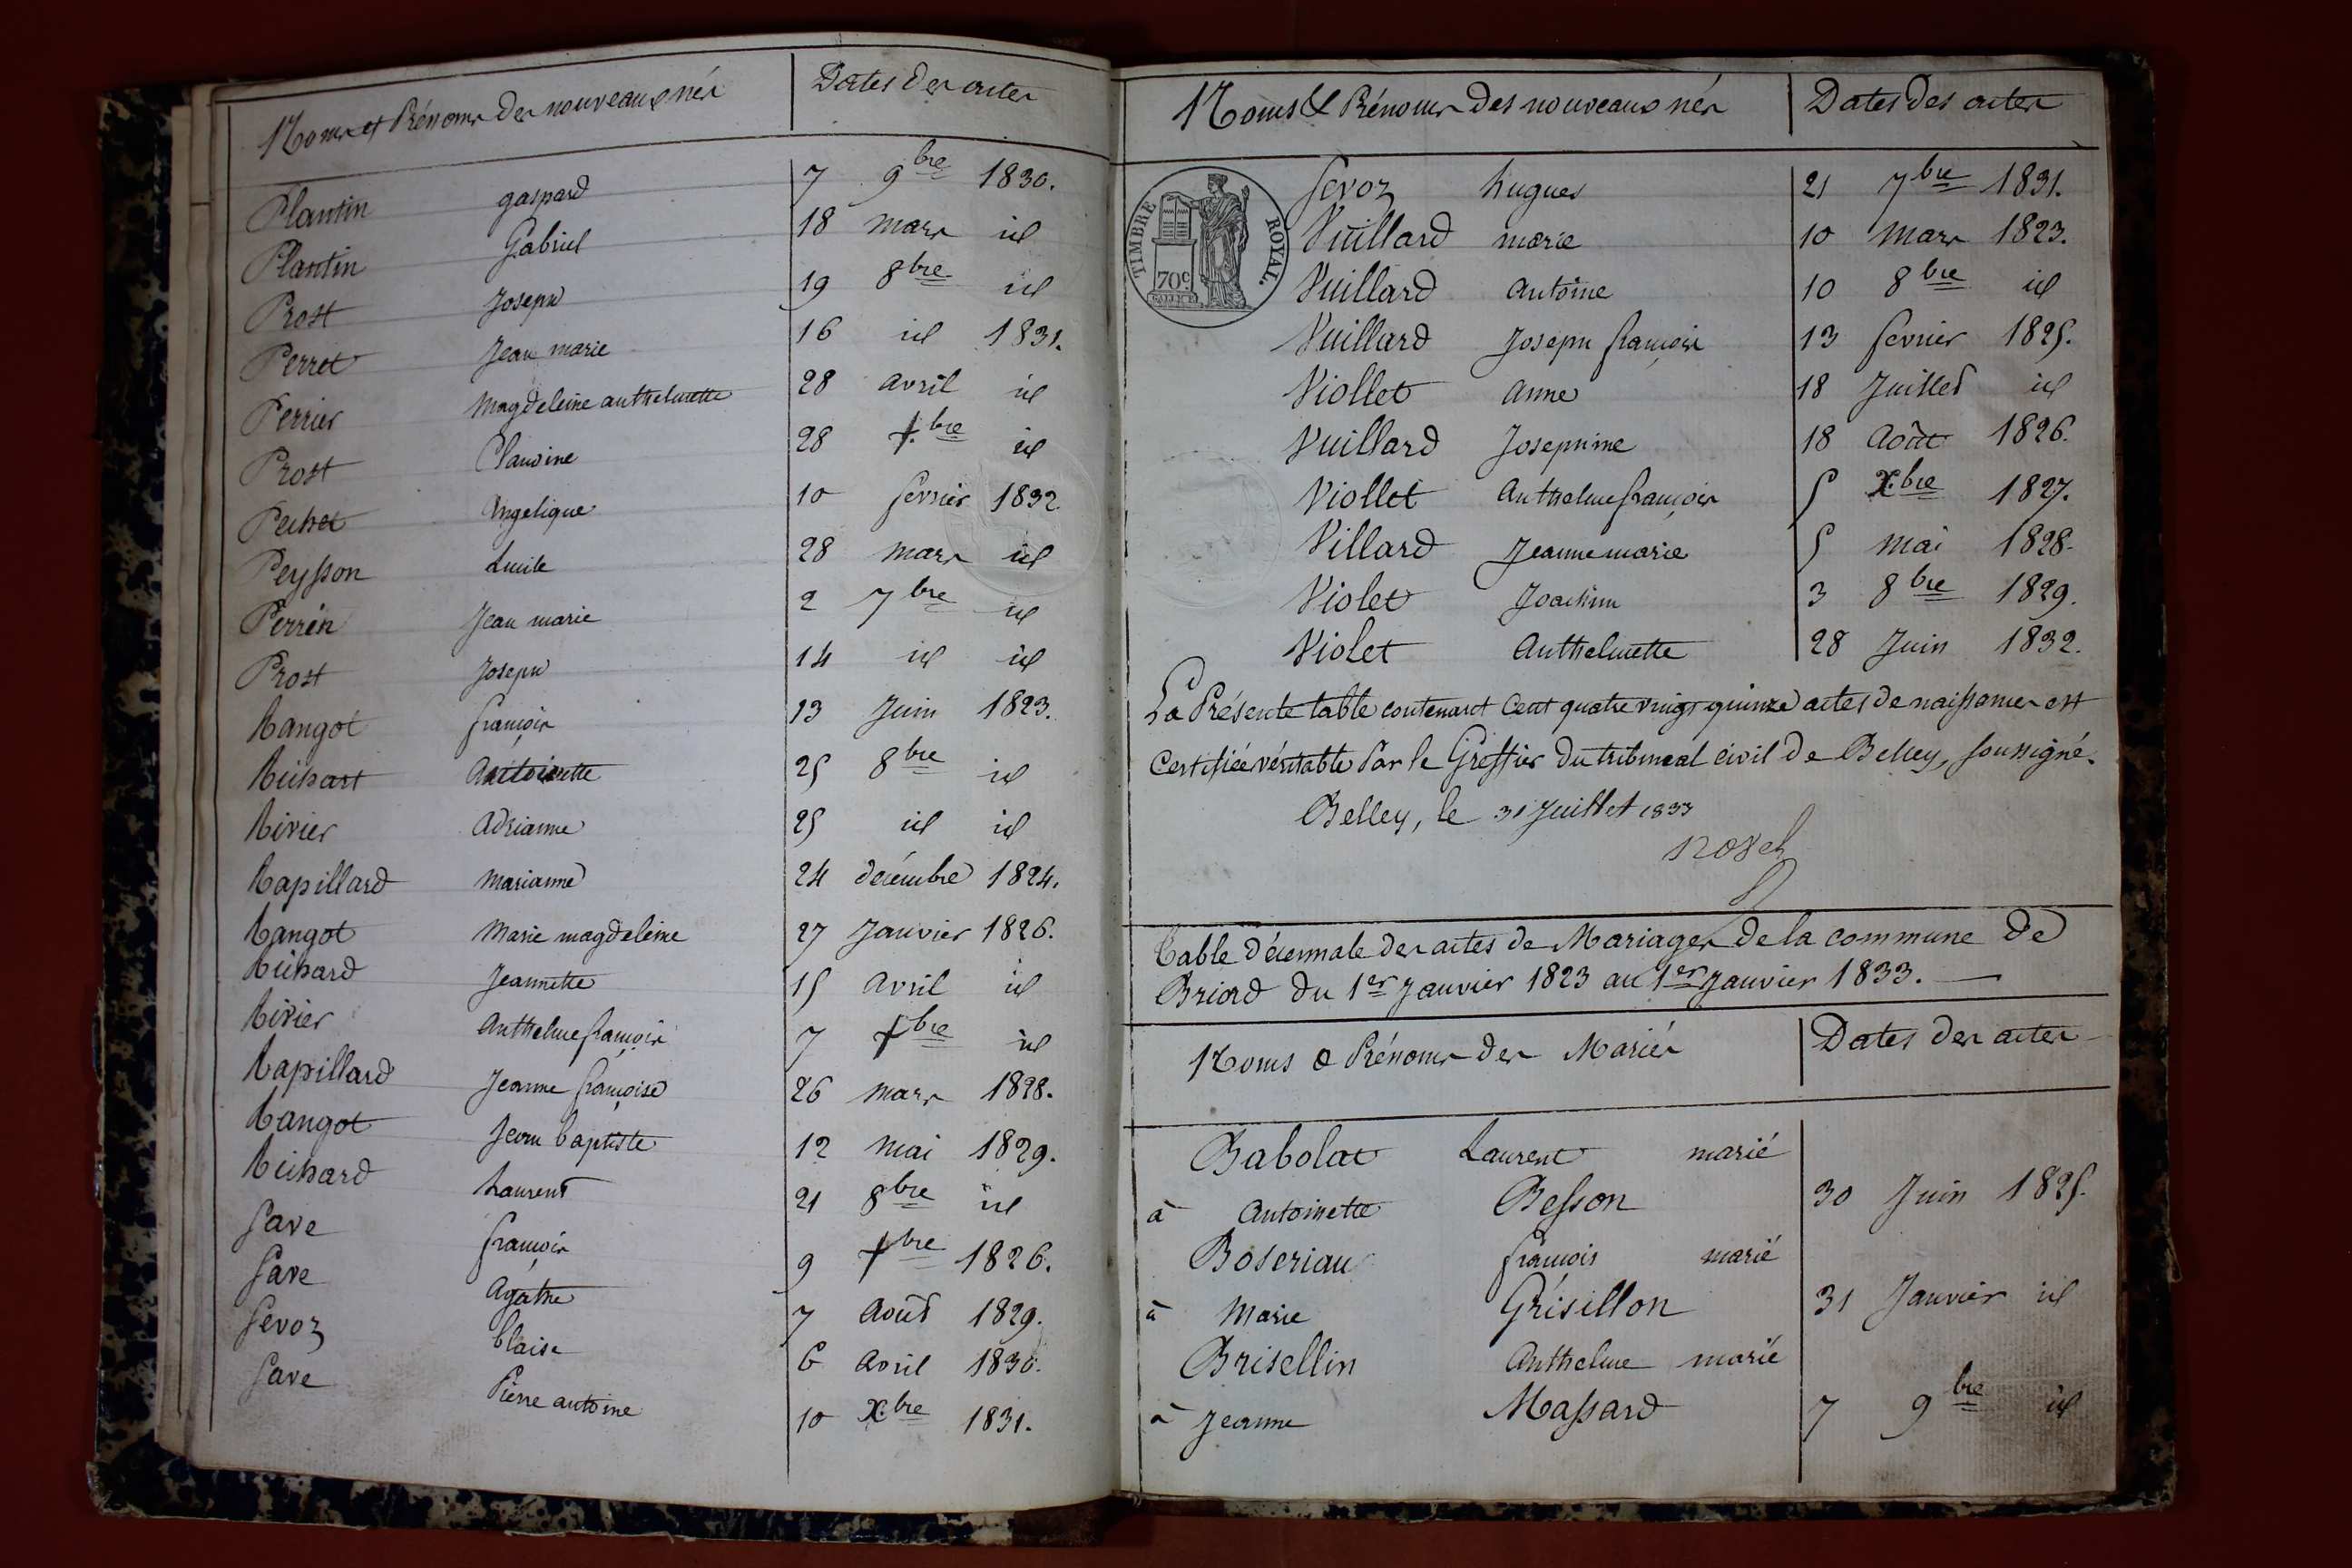 Noms et Prénoms des nouveaux nés Dates des actes
Plantin gaspard 7 9bre 1830.
Plantin Gabriel 18 mars id
Prost Joseph 19 8bre id
Perret Jean marie 16 id 1831.
Perrier Magdeleine anthelmette 28 avril id
Prost Claudine 28 Xbre id
Pechet Angelique 10 fevrier 1832
Peysson Lucile 28 mars id
Perrin Jean marie 2 7bre id
Prost Joseph 14 id id
Rangot françois 13 Juin 1823.
Richart Antoinette 25 8bre id
Rivier Adrianne 25 id id
Rapillard Marianne 24 décembre 1824.
Rangot Marie magdeleine 27 Janvier 1826.
Richard Jeannette 15 avril id
Rivier Anthelme françois 7 Xbre id
Rapillard Jeanne françoise 26 mars 1828.
Rangot Jean baptiste 12 mai 1829.
Richard Laurent 21 8bre id
Save françois 9 Xbre 1826.
Save Agathe 7 Août 1829.
Sevoz blaise 6 avril 1830.
Save Pierre antoine 10 Xbre 1831.
Noms & Prénoms des nouveaux nés Dates des actes
TIMBRE ROYAL.
70c
Sevoz hugues 21 7bre 1831.
Vuillard marie 10 Mars 1823.
Vuillard Antoine 10 8bre id
Vuillard Joseph françois 13 fevrier 1825.
Viollet Anne 18 Juillet id
Vuillard Josephine 18 Août 1826.
Viollet Anthelme françois 5 Xbre 1827.
Villard Jeanne marie 5 mai 1828.
Violet Joachim 3 8bre 1829.
Violet Anthelmette 28 Juin 1832.
La Présente table contenant Cent quatre vingt quinze actes de naissances est
Certifiée véritable Par le Greffier du tribunal civil de Belley, soussigné.
Belley, le 31 Juillet 1833
Table décennale des actes de Mariages de la commune de
Briord du 1er Janvier 1823 au 1er Janvier 1833.
Noms & Prénoms des Mariés Dates des actes
Babolat Laurent marié
à Antoinette Besson 30 Juin 1825.
Boseriau françois marié
à Marie Grisillon 31 Janvier id
Brisellin Anthelme marié
à Jeanne Massard 7 9bre id